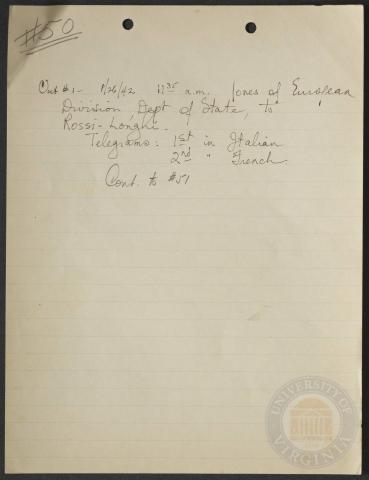 #50
Cut #1 - 1/26/42 11 35 a.m. Jones of European
Division, Dept of State, to
Rossi-Longhi.
Telegrams: 1st in Italian
2nd " French.
Cont. to #51
UNIVERSITY OF VIRGINIA